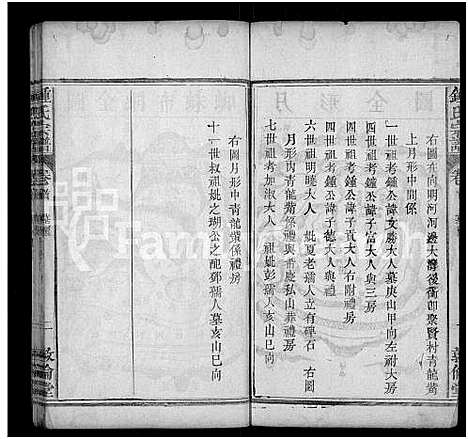 鍾氏宗譜
卷
右圖在向明河河邊大灣後衝即聚賢村青龍嘴
上月形中間係
一世祖考鍾公諱文勝大人墓庚山甲向左祔大房
二世祖考鍾公諱子富大人與三房
三世祖考鍾公諱子貢大人右二房
四世祖考鍾公諱子德大人與
六世祖明曉大人 妣夏老孺人立有碑石 右圖
月形內青龍嘴係與香庭私山葬禮房
七世祖考加淑大人 祖妣彭孺人亥山巳向
右圖月形中青龍嘴係禮房
十一世叔祖妣之瑚公之配鄧孺人墓亥山巳向
鍾氏宗譜
卷首
墓圖
一
敦倫堂